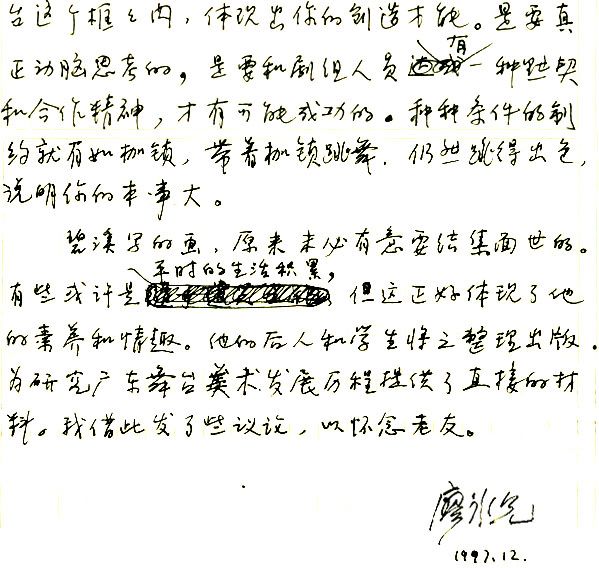 台这个框之内，体现出你的创造才能。是要真
正动脑思考的，是要和剧组人员有一种默契
和合作精神，才有可能成功的。种种条件的制
约就有如枷锁，带着枷锁跳舞，仍然跳得出色，
说明你的本事大。
碧溪写的画，原来未必有意要结集面世的。
平时的生活积累，
有些或许是 但这正好体现了他
的素养和情趣。他的后人和学生将之整理出版．
为研究广东舞台美术发展历程提供了直接的材
料。我借此发了些议论，以怀念老友。
1997.12.